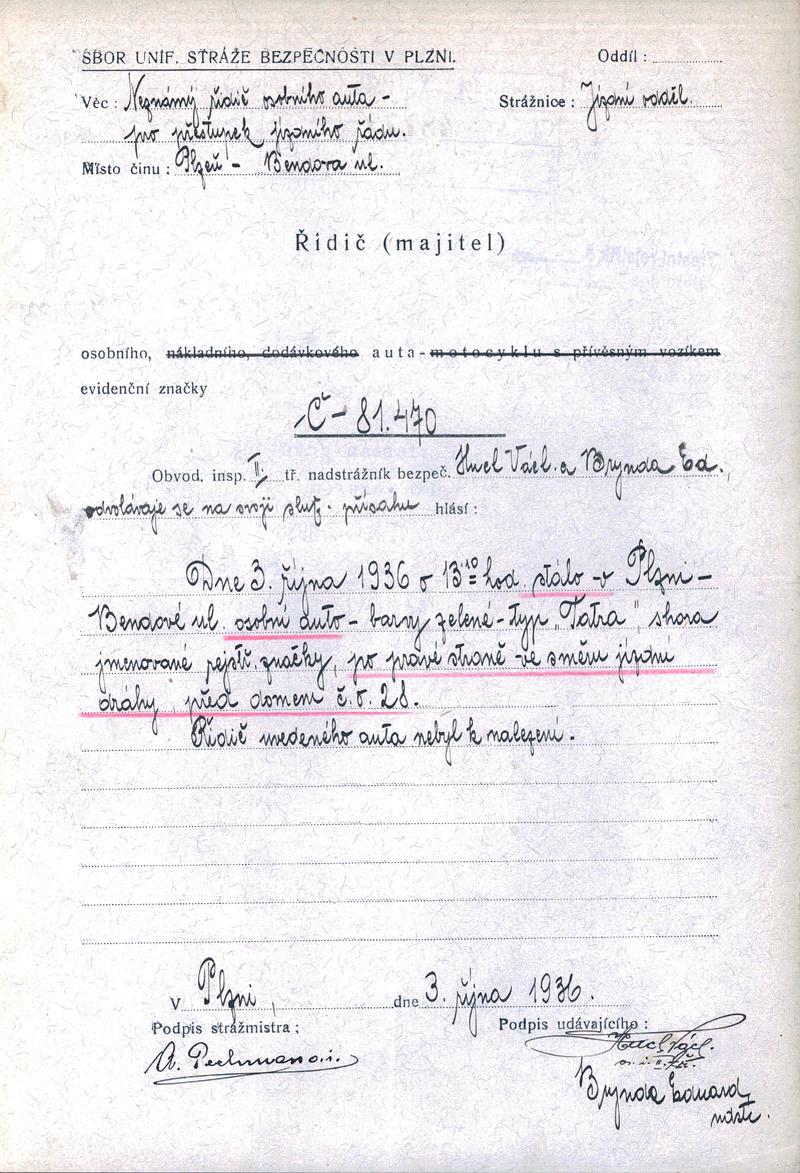 SBOR UNIF. STRÁŽE BEZPEČNOSTI V PLZNI.
Oddíl :
Věc : Neznámý řidič osobního auta -
Strážnice : Jízdní odděl.
pro přestupek jízdního řádu.
Místo činu : Plzeň - Bendova ul.
Řidič (majitel)
osobního, nákladního, dodávkového auta - motocyklu s přívěsným vozíkem
evidenční značky
Č - 81.470
Obvod. insp. II. tř. nadstrážník bezpeč. Hucl Václ. a Brynda Ed.,
odvolávaje se na svoji služ. přísahu hlásí :
Dne 3. října 1936 o 13¹⁰ hod. stálo v Plzni -
Bendově ul. osobní auto - barvy zelené - typ „Tatra" shora
jmenované rejstř. značky, po pravé straně ve směru jízdní
dráhy, před domem č. o. 28.
Řidič uvedeného auta nebyl k nalezení.
V Plzni, dne 3. října 1936.
Podpis strážmistra :
Podpis udávajícího :
Hucl Václ.
Brynda Eduard
ndstr.